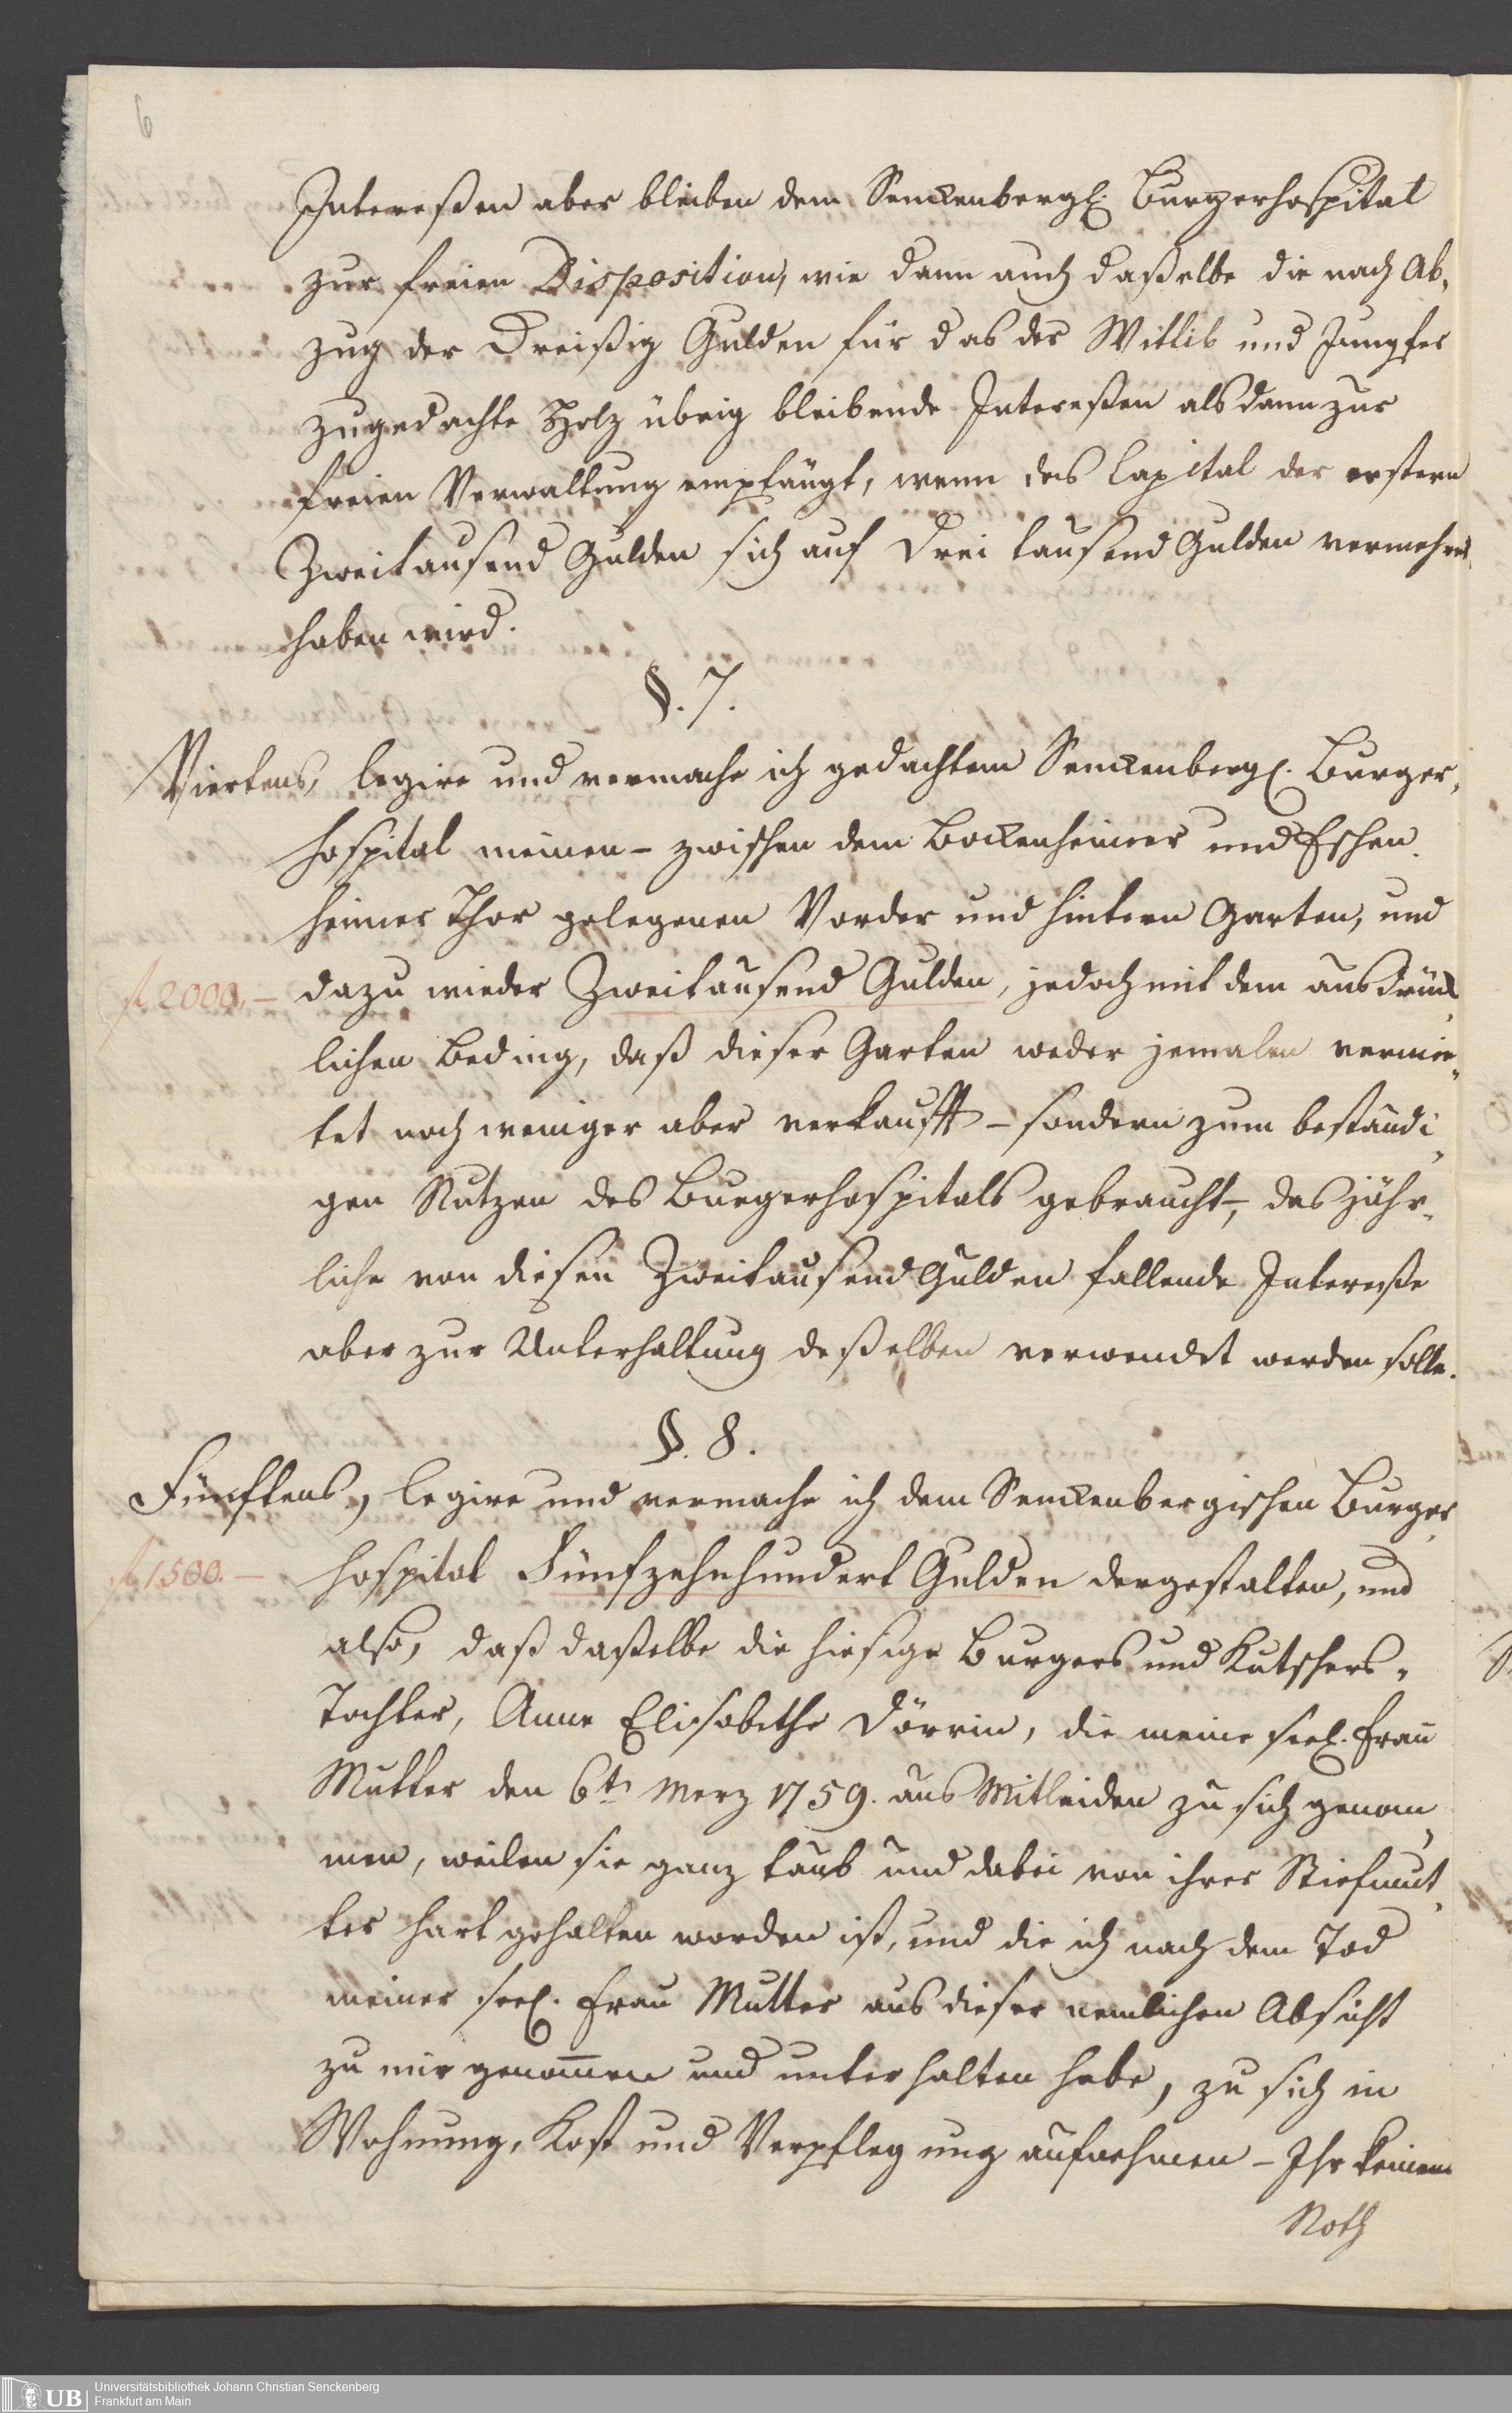 6
Intereßen aber bleiben dem Senckenbergl. Burgerhospital
zur freien Disposition, wie dann auch daßelbe die nach Ab„
zug der Dreißig Gulden für das der Wittib und Jungfer
zugedachte Holz übrig bleibende Intereßen alsdann zur
freien Verwaltung empfängt, wenn das Capital der erstern
Zweitausend Gulden sich auf Drei tausend Gulden vermehret
haben wird.
§. 7.
Viertens, legire und vermache ich gedachtem Senckenbergl. Burger„
hospital meinen – zwischen dem Bockenheimer und Eschen„
heimer Thor gelegenen Vorder und hintern Garten, und
fl 2000. – dazu wieder Zweitausend Gulden, jedoch mit dem ausdrück„
lichen Beding, daß dieser Garten weder jemalen vermie„
tet noch weniger aber verkaufft – sondern zum beständi„
gen Nutzen des Burgerhospitals gebraucht –, das jähr„
liche von diesen Zweitausend Gulden fallende Intereße
aber zur Unterhaltung deßelben verwendet werden solle.
§. 8.
Fünftens, legire und vermache ich dem Senckenbergischen Burger„
fl 1500. – hospital Fünfzehnhundert Gulden dergestalten, und
also, daß daßelbe die hiesige Burgers und Kutschers„
Tochter, Anne Elisabethe Dörrin, die meine seel. Frau
Mutter den 6t. Merz 1759. aus Mitleiden zu sich genom„
men, weilen sie ganz taub und dabei von ihrer Stiefmut„
ter hart gehalten worden ist, und die ich nach dem Tod
meiner seel. Frau Mutter aus dieser nemlichen Absicht
zu mir genom̅en und unterhalten habe, zu sich in
Wohnung, Kost und Verpflegung aufnehmen – Ihr keinem
Noth
UB Universitätsbibliothek Johann Christian Senckenberg
Frankfurt am Main